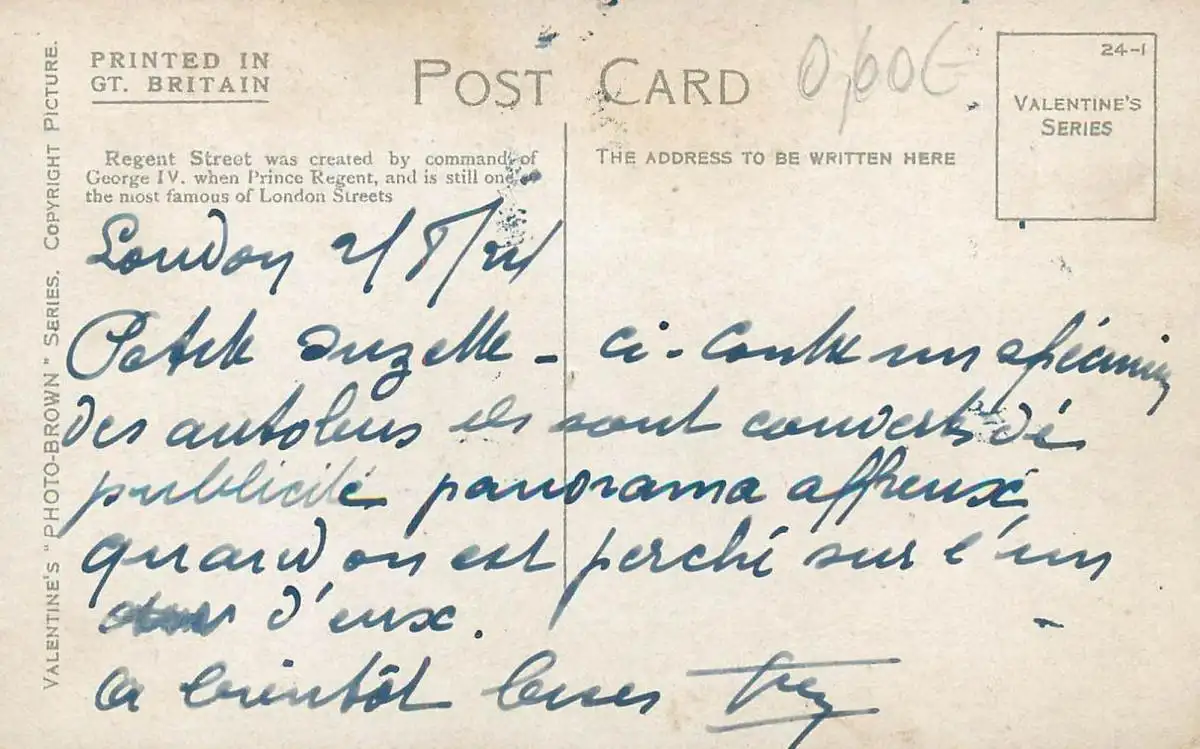 PRINTED IN
GT. BRITAIN
POST CARD
0,60€
24-1
VALENTINE'S
SERIES
Regent Street was created by command of
George IV. when Prince Regent, and is still one of
the most famous of London Streets
THE ADDRESS TO BE WRITTEN HERE
VALENTINE'S "PHOTO-BROWN" SERIES. COPYRIGHT PICTURE.
London 2/8/24
Petite Suzette - ci-contre un spécimen
des autobus ils sont couverts de
publicité panorama affreux
quand on est perché sur l'un
d'eux.
a bientôt bises